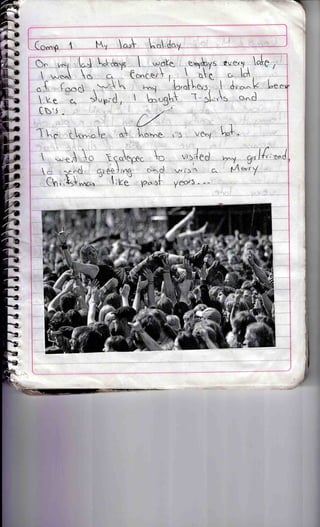 Comp. 1 My last holiday
On my last holidays I woke every late,
I went to a Concert, I ate a lot
of food with my brothers, I drank beer
like a stupid, I bought T-shirts and
CD's.
The climate at home is very hot.
I went to Ecatepec to visited my girlfriend,
to send greeting and wish a Merry
Christmas like past years...